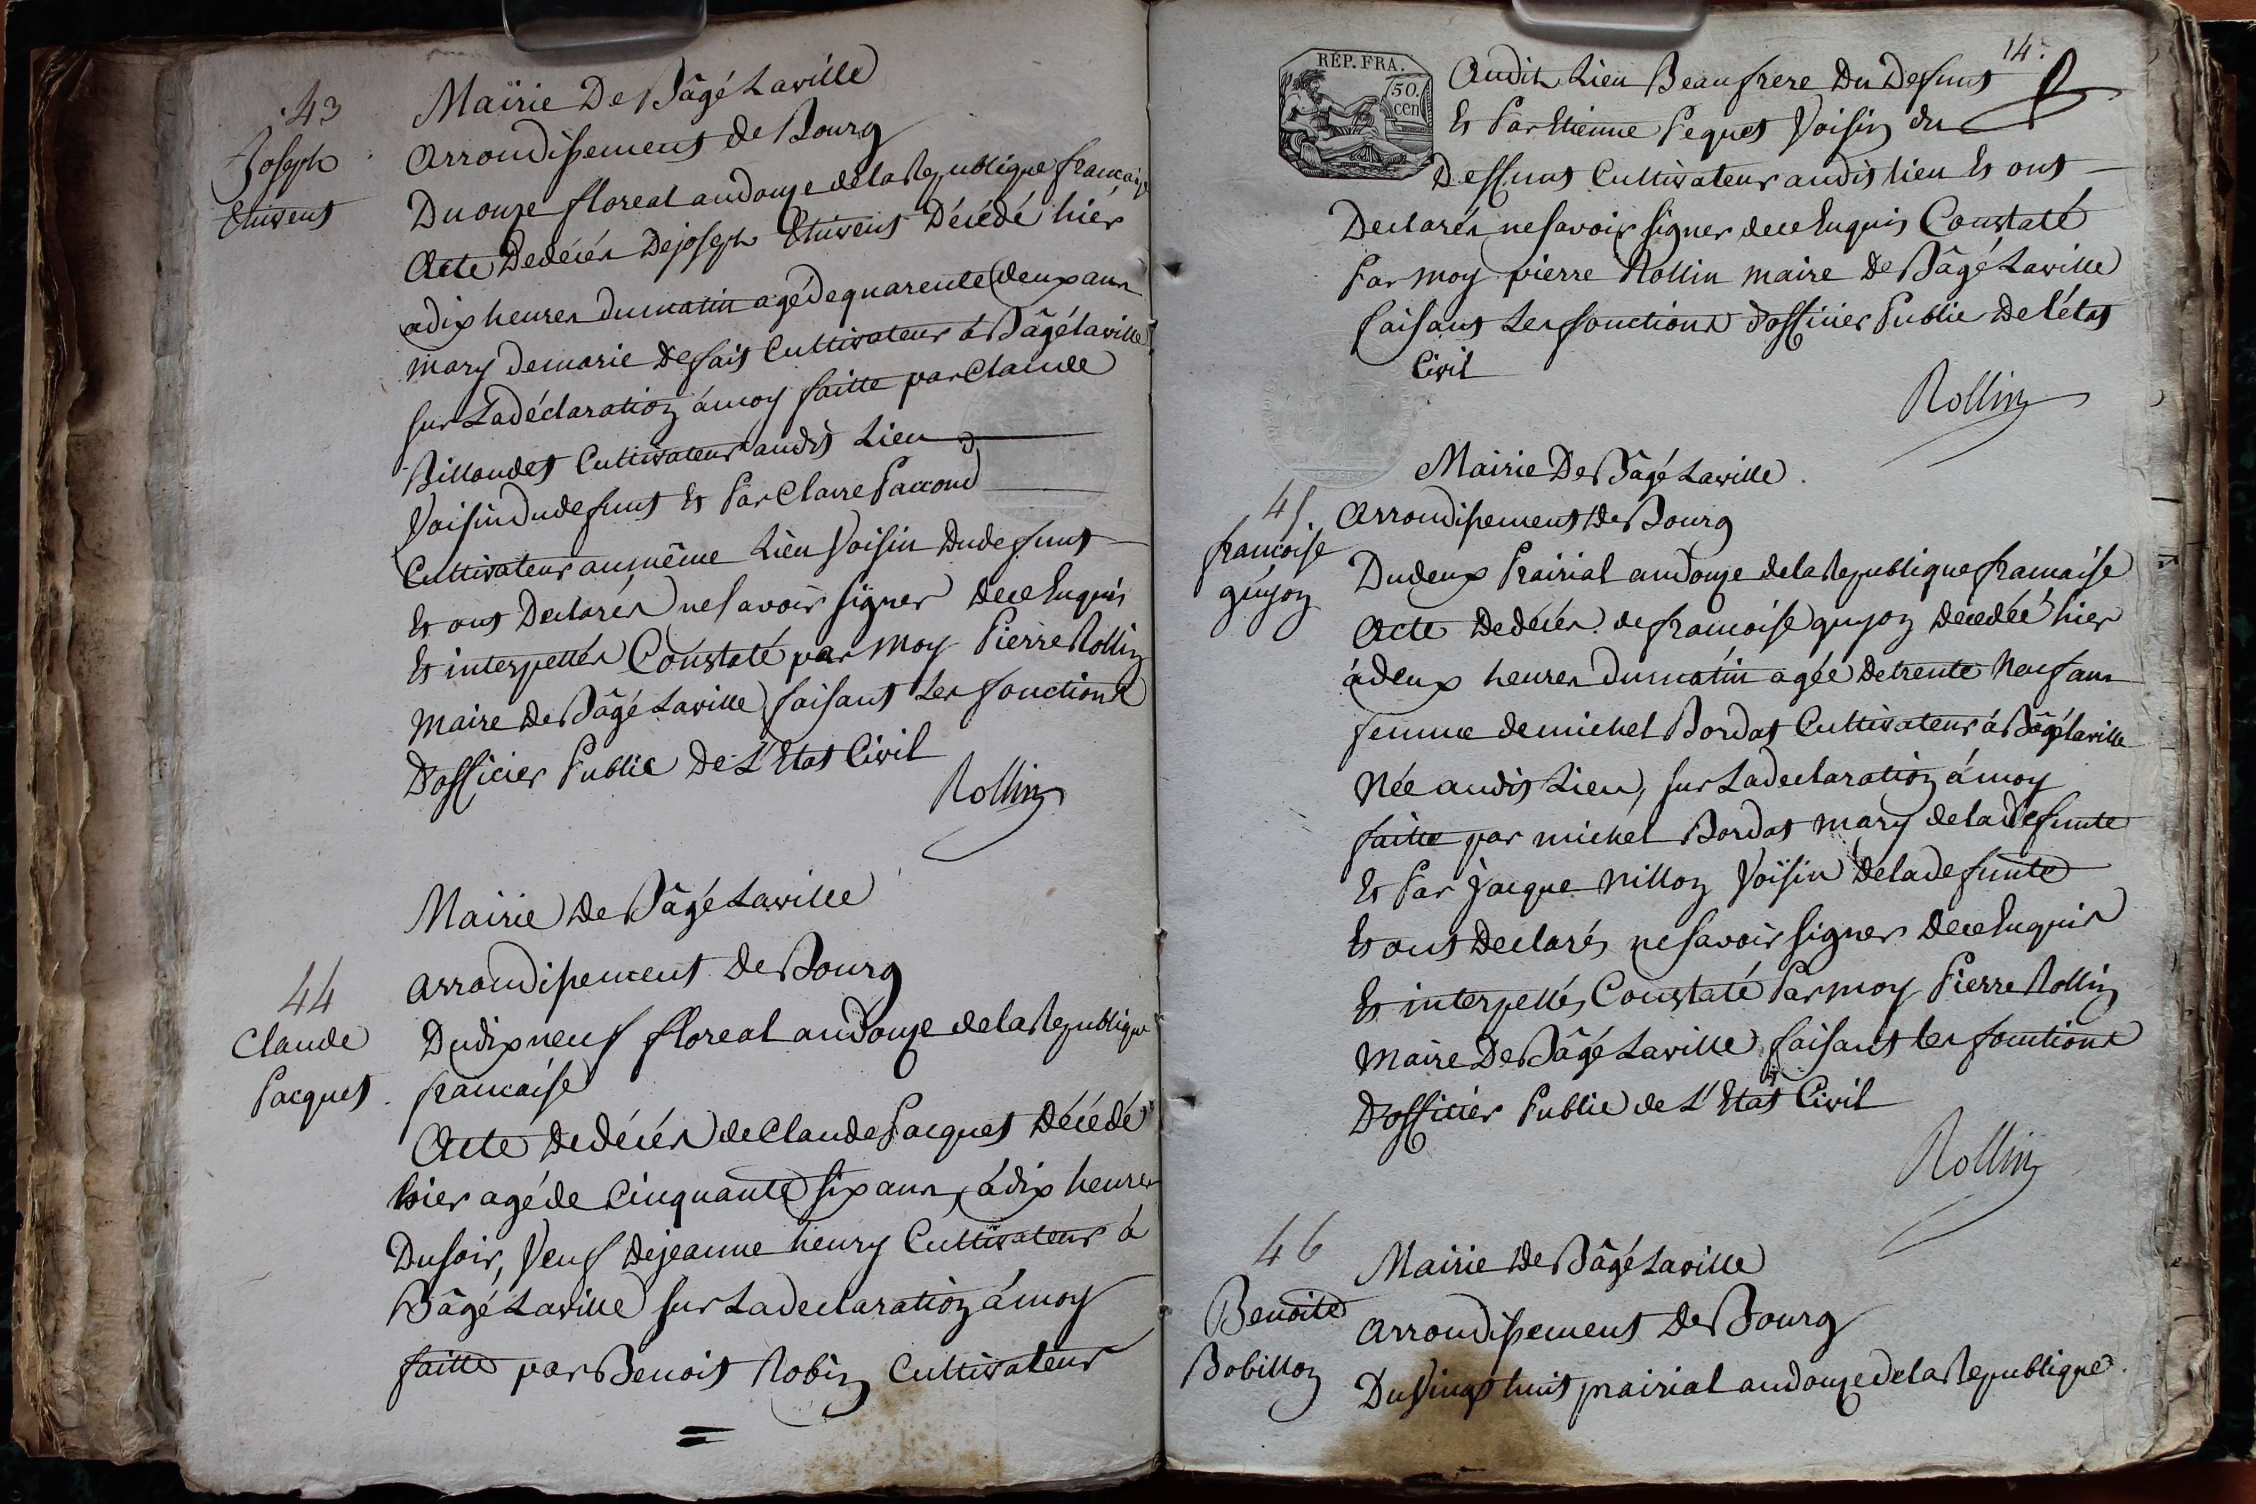 43
Joseph
Thivent
Maïrie De Bâgé Laville
Arrondissement de Bourg
Du onze floreal an douze de la Republique francaise
Acte De décés De joseph Thivent Décédé hier
a dix heures du matin agé de quarente deux ans
mary de marie Defait Cultivateur á Bâgé laville
sur La déclaration á moy faitte par Claude
Billoudet Cultivateur audit Lieu
Voisin du defunt Et Par Claire Paccoud
Cultivateur au même Lieu Voisin Du defunt
Et ont Declarés ne savoir signer De ce Enquis
Et interpellés Constaté par moy Pierre Rollin
Maire De Bâgé Laville faisant Les fonctions
D'officier Public De L'Etat Civil
Rollin
44
Claude
Pacquet
Mairie De Bâgé Laville
Arrondissement De Bourg
Du dix neuf floreal an douze de la Republique
francaise
Acte De décés de Claude Pacquet Décédé
hier agé de Cinquante six ans, á dix heures
Du soir, Veuf De jeanne henry Cultivateur á
Bâgé Laville sur La declaration á moy
faitte par Benoit Robin Cultivateur
14.
REP. FRA.
50.
cen
Audit Lieu Beaufrere Du Defunt
Et Par Etienne Pequet Voisin du
Deffunt Cultivateur audit lieu Et ont
Declarés ne savoir signer de ce Enquis Constaté
Par moy pierre Rollin maire De Bâgé Laville
faisant Les fonctions d'officier Public De l'état
Civil
Rollin
45.
francoise
guyon
Mairie De Bâgé Laville.
Arrondissement De Bourg
Du deux Prairial an douze de la Republique francaise
Acte De décés de francoise guyon Décédée hier
á deux heures du matin agée De trente Neuf ans
femme de michel Bordat Cultivateur á Bâgé laville
Née audit Lieu, sur La declaration á moy
faitte par michel Bordat mary de la Defunte
Et Par Jacque Nillon Voisin De la defunte
Et ont Declarés ne savoir signer De ce Enquis
Et interpellés Constaté Par moy Pierre Rollin
Maire De Bâgé Laville faisant les fonctions
D'officier Public de L'Etat Civil
Rollin
46
Benoite
Bobillon
Mairie De Bâgé Laville
Arrondissement De Bourg
Du Vingt huit prairial an douze de la Republique